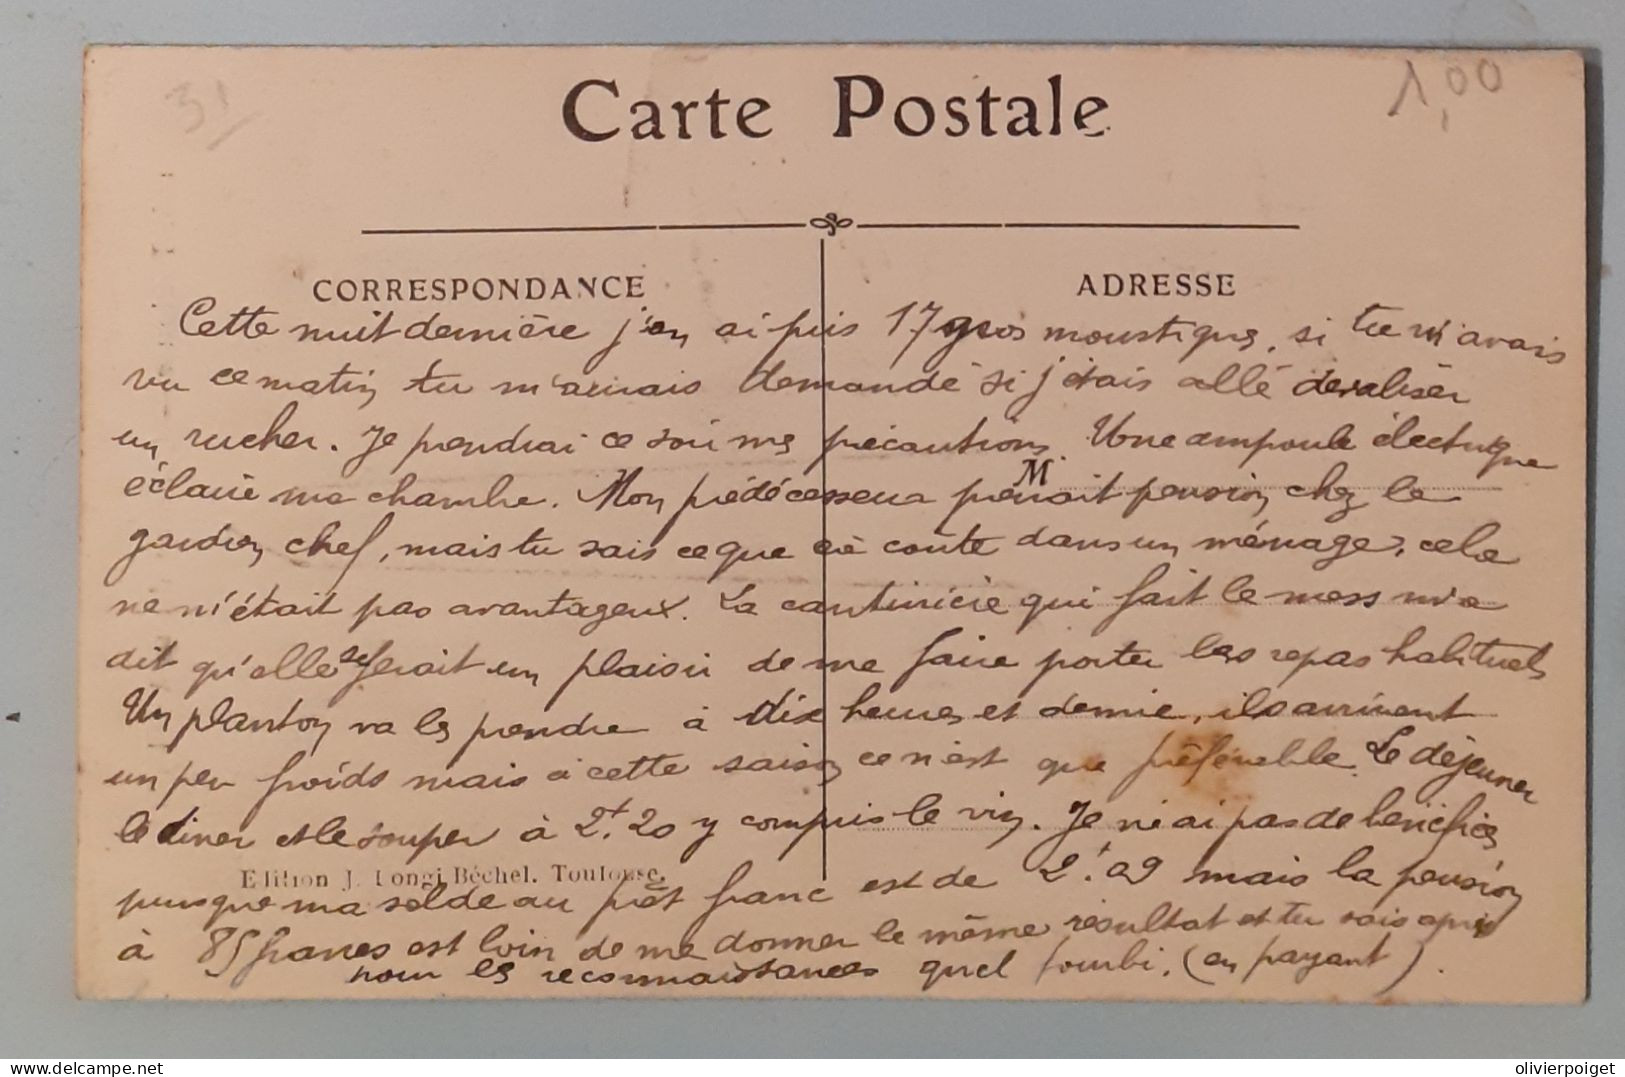 31
1,00
Carte Postale
CORRESPONDANCE
ADRESSE
Cette nuit dernière j'en ai pris 17 gros moustiques, si tu m'avais
vu ce matin tu m'aurais demandé si j'étais allé dévaliser
un rucher. Je prendrai ce soir mes précautions. Une ampoule électrique
éclaire ma chambre. Mon prédécesseur prenait pension chez le
M
gardien chef, mais tu sais ce que ça coûte dans un ménage, cela
ne m'était pas avantageux. La cantinière qui fait le mess m'a
dit qu'elle se ferait un plaisir de me faire porter les repas habituels
Un planton va les prendre à dix heures et demie, ils arrivent
un peu froids mais à cette saison ce n'est que préférable. Le déjeuner
le diner et le souper à 2f.20 y compris le vin. Je n'ai pas de bénéfices
Edition J. Longi Béchel. Toulouse.
puisque ma solde au prêt franc est de 2f.09 mais la pension
à 85 francs est loin de me donner le même résultat et tu sais après
pour les reconnaissances quel fourbi. (en payant).
olivierpoiget